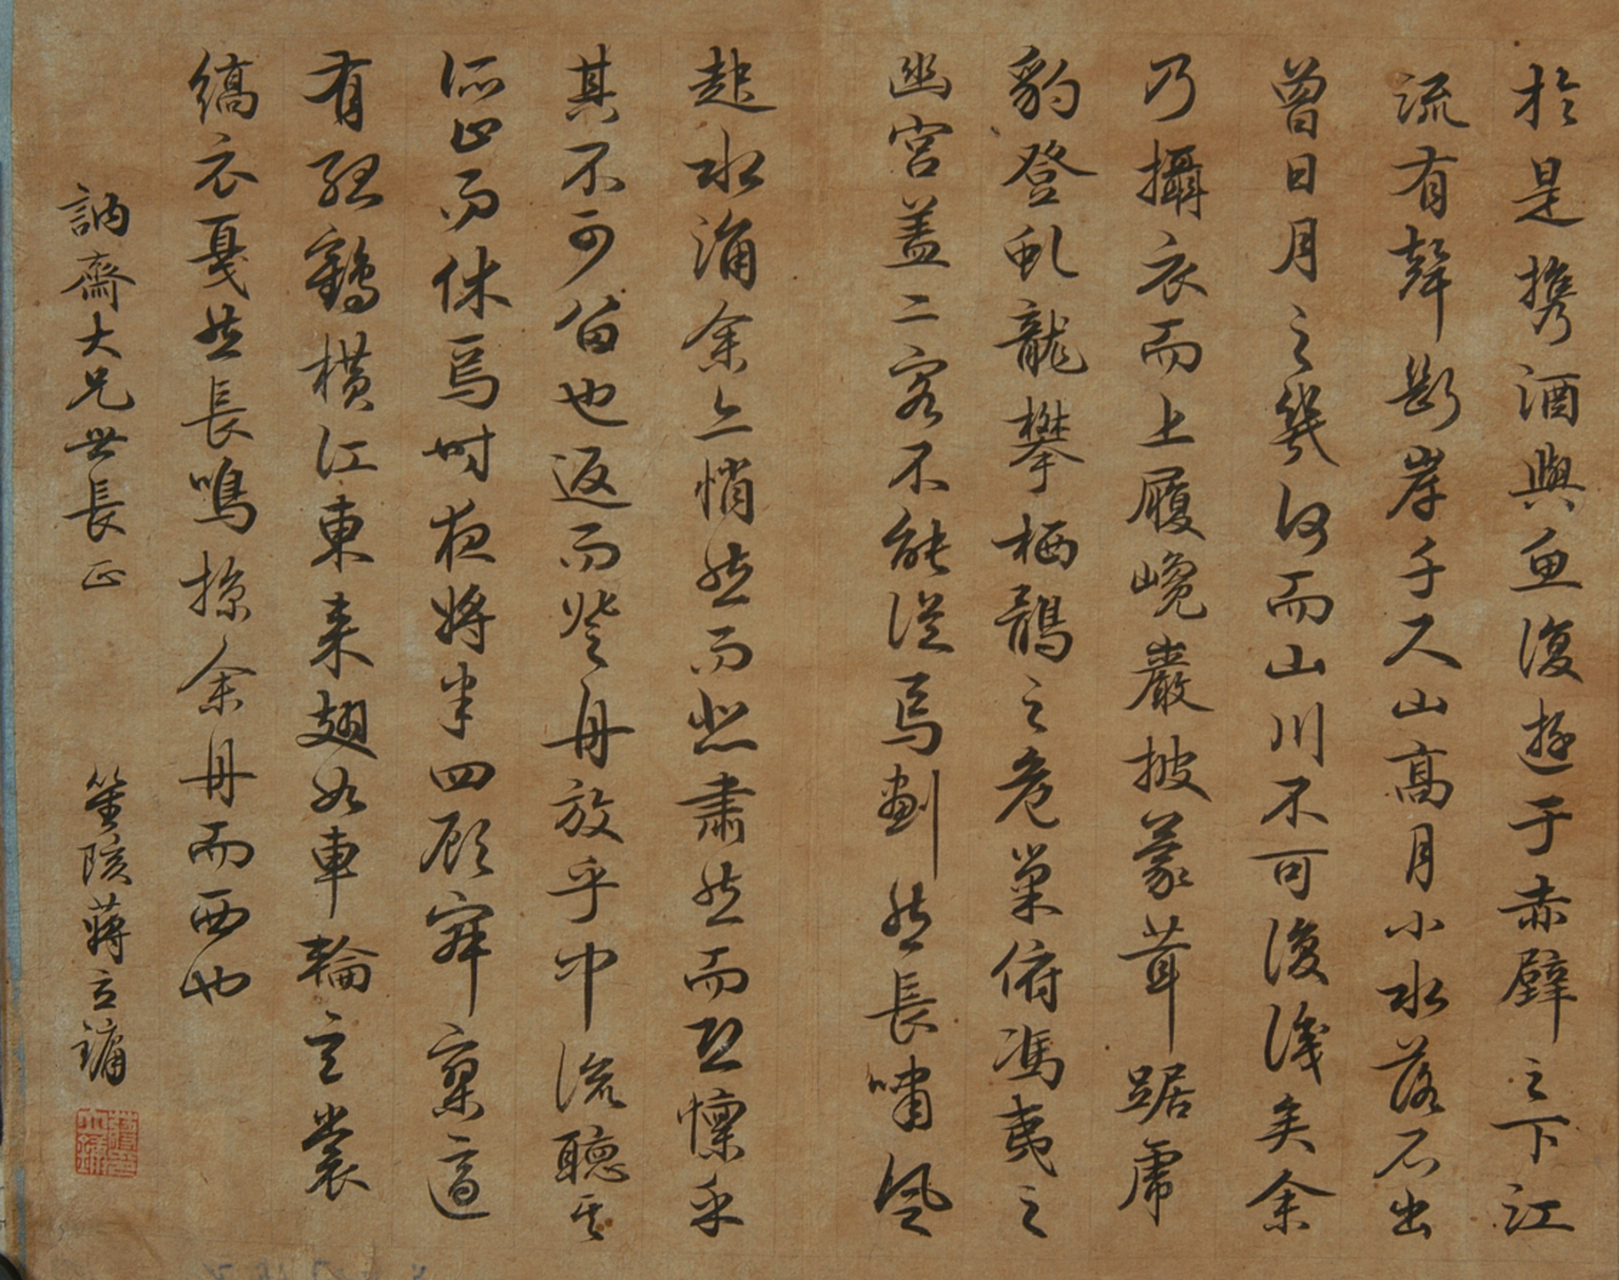 於是携酒與魚復遊于赤壁之下江
流有聲斷岸千尺山高月小水落石出
曾日月之幾何而山川不可復識矣余
乃攝衣而上履巉巖披蒙茸踞虎
豹登虬龍攀栖鶻之危巢俯馮夷之
幽宮蓋二客不能從焉劃然長嘯風
起水涌余亦悄然而悲肅然而恐懍乎
其不可留也返而登舟放乎中流聽其
所止而休焉時夜將半四顧寂寥適
有孤鶴橫江東來翅如車輪玄裳
縞衣戛然長鳴掠余舟而西也
訥齋大兄世長正
笙陔蔣立鏞